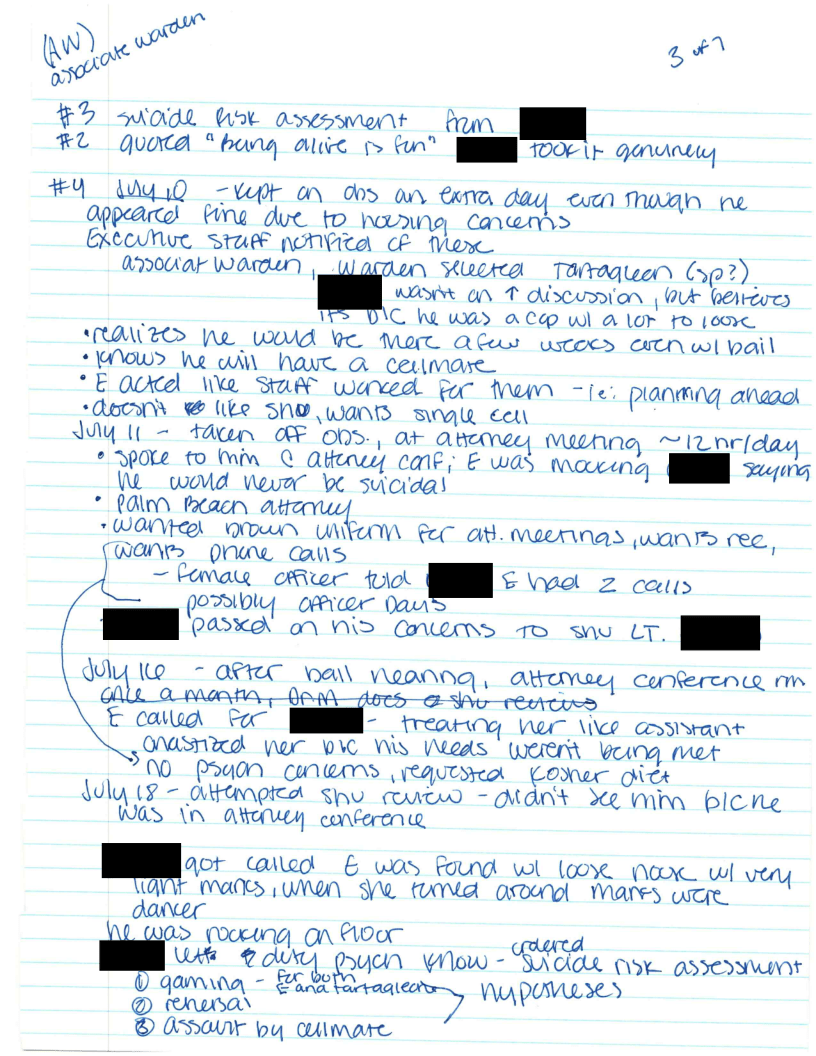 (AW)
associate warden
3 of 7
#3 suicide Risk assessment from
#2 quoted "Being alive is fun" took it genuinely
#4 July 10 - kept on obs an extra day even though he
appeared fine due to housing concerns
Executive staff notified of these
associat warden, warden selected Tartagleen (sp?)
wasn't on ↑ discussion, but believes
its b/c he was a cop w/ a lot to loose
• realizes he would be there a few weeks even w/ bail
• knows he will have a cellmate
• E acted like staff worked for them - ie: planning ahead
• doesn't like shu, wants single cell
July 11 - taken off obs., at attorney meeting ~12hr/day
• spoke to him @ attorney conf; E was mocking saying
he would never be suicidal
• Palm Beach attorney
• wanted brown uniform for att. meetings, wants rec,
wants phone calls
- female officer told E had 2 calls
possibly officer Davis
passed on his concerns to shu LT.
July 16 - after bail hearing, attorney conference rm
once a month, DHM does shu reviews
E called for - treating her like assistant
chastized her b/c his needs weren't being met
no psych concerns, requested Kosher diet
July 18 - attempted shu review - didn't see him b/c he
was in attorney conference
got called E was found w/ loose noose w/ very
light marks, when she turned around marks were
dancer
he was rocking on floor
duty psych know - ordered suicide risk assessment
① gaming - for both E and tartagleen
② rehersal
③ assault by cellmate
hypotheses